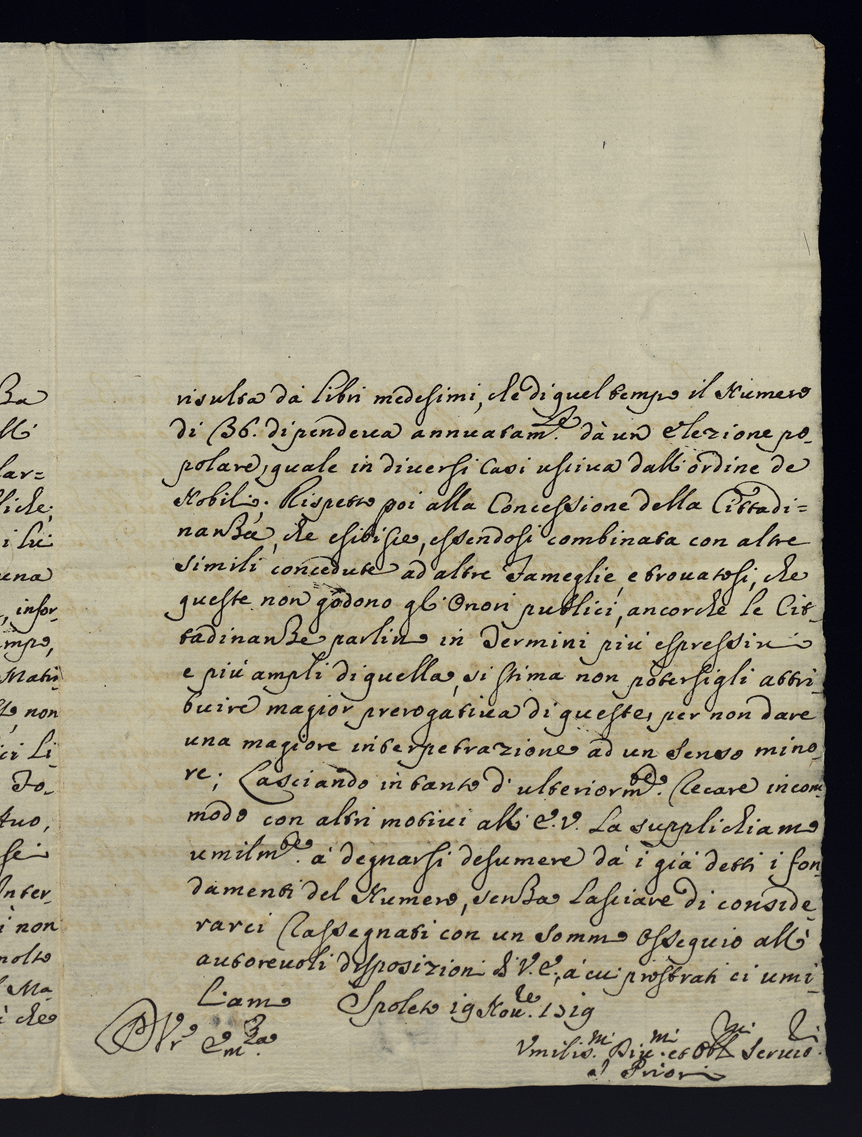 risulta da libri medesimi, che di quel tempo il Numero
di 36. dipendeua annuatam.te dà un elezione po-
polare, quale in diuersi Casi usciua dall'ordine de
Nobili. Rispetto poi alla Concessione della Cittadi=
nanza, che esibisce, essendosi combinata con altre
simili concedute ad altre Fameglie, e trouatosi, che
queste non godono gl'Onori publici, ancorche le Cit-
tadinanze parlino in Termini più espressiui
e più ampli di quella, si stima non potersigli attri-
buire magior prerogatiua di queste, per non dare
una magiore interpetrazione ad un senso mino-
re; Lasciando in tanto d'ulteriorm.te Recare incom-
modo con altri motiui all'E.V. La supplichiamo
umilm.te à degnarsi desumere dà i già detti i fon-
damenti del Numero, senza Lasciare di conside-
rarci Rassegnati con un sommo Ossequio all'
autoreuoli disposizioni di V.E., à cui prostrati ci umi-
liamo Spoleto 19 Nou.re 1719
D Vr̃a Em.za
Vmilis.mi Diu.mi et Obl.mi Seruio.ri
I Priori
Za
ll'
lar=
liche,
i lui
una
, infor-
mpo,
Matri
non
ici Li
Fo-
tuo,
sei
Inter-
i non
molto
l Ma-
i che